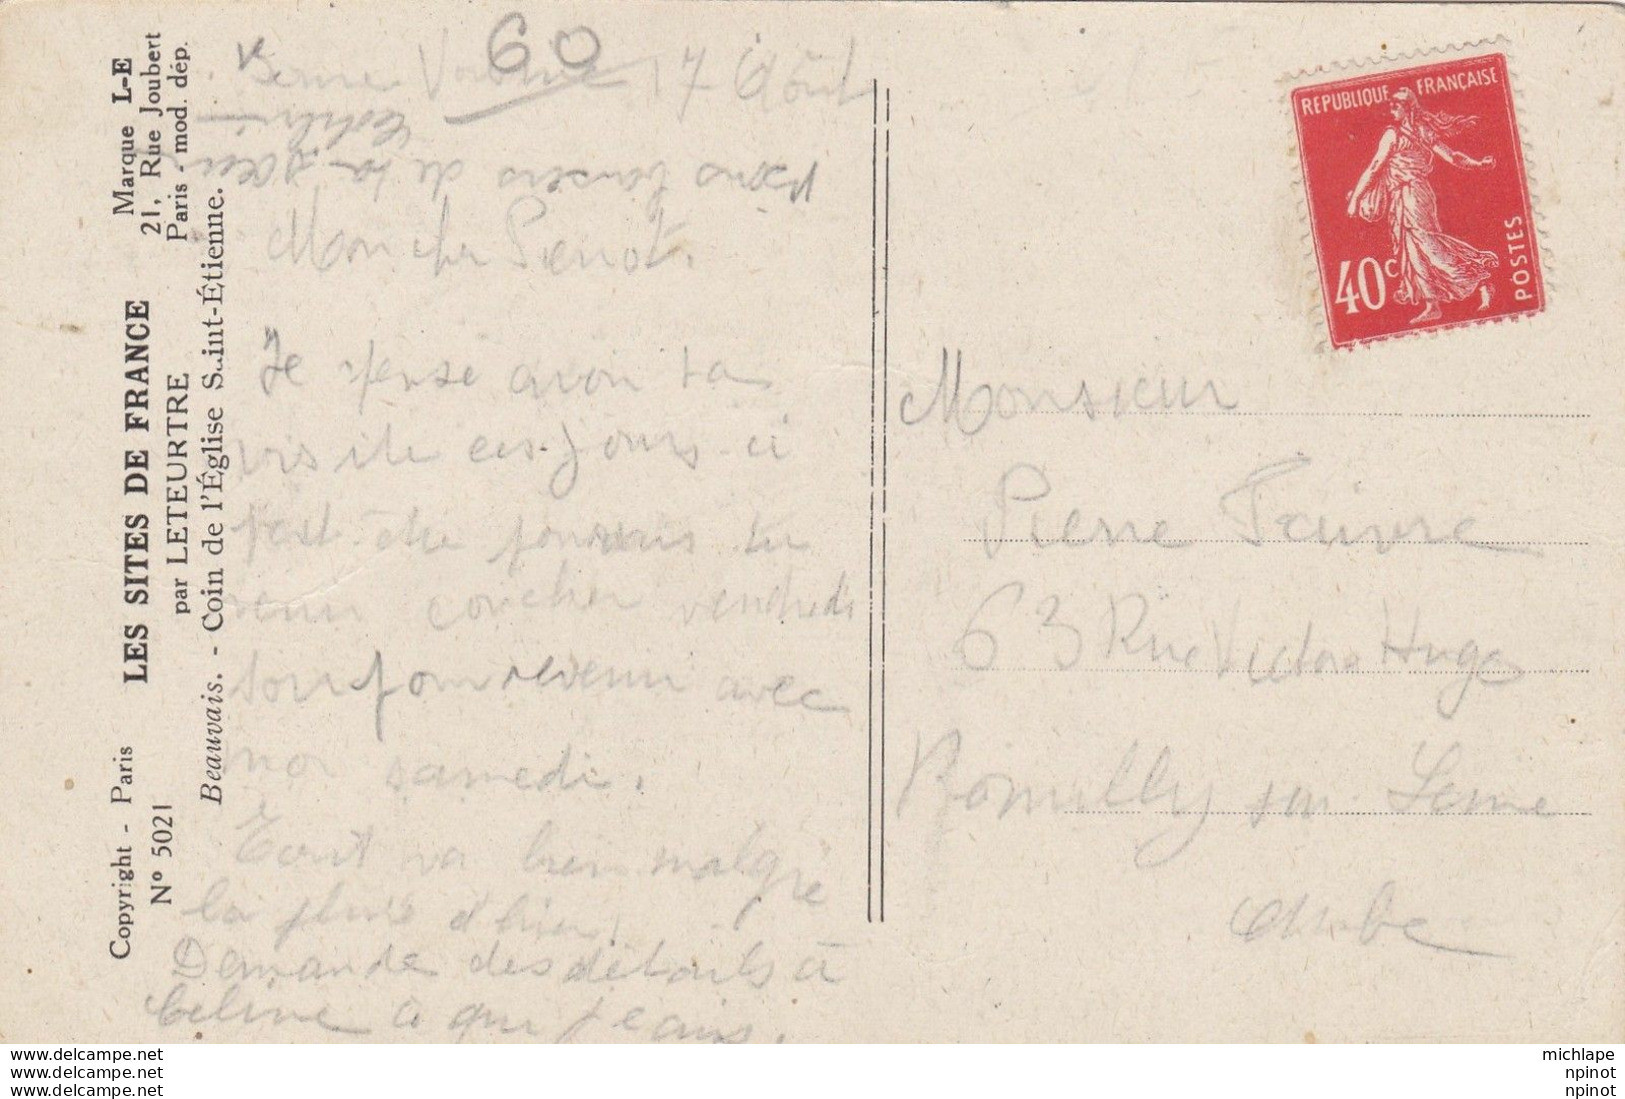 Copyright - Paris LES SITES DE FRANCE Marque L-E
N° 5021 par LETEURTRE 21, Rue Joubert
Paris - mod. dép.
Beauvais. - Coin de l'Église Saint-Étienne.
60
17 Août
bons baisers de ta
Mon cher Pierrot.
Je pense avoir ta
visite ces jours ci
peut être pourrais tu
venir coucher vendredi
soir pour revenir avec
moi samedi.
Tout va bien malgré
la pluie d'hier,
Demande des détails à
Celine à qui j'ecris.
RÉPUBLIQUE FRANÇAISE
40c
POSTES
Monsieur
Pierre
63 Rue Victor Hugo
Romilly sur Seine
Aube
www.delcampe.com
www.delcampe.com
www.delcampe.com
michlape
npinot
npinot